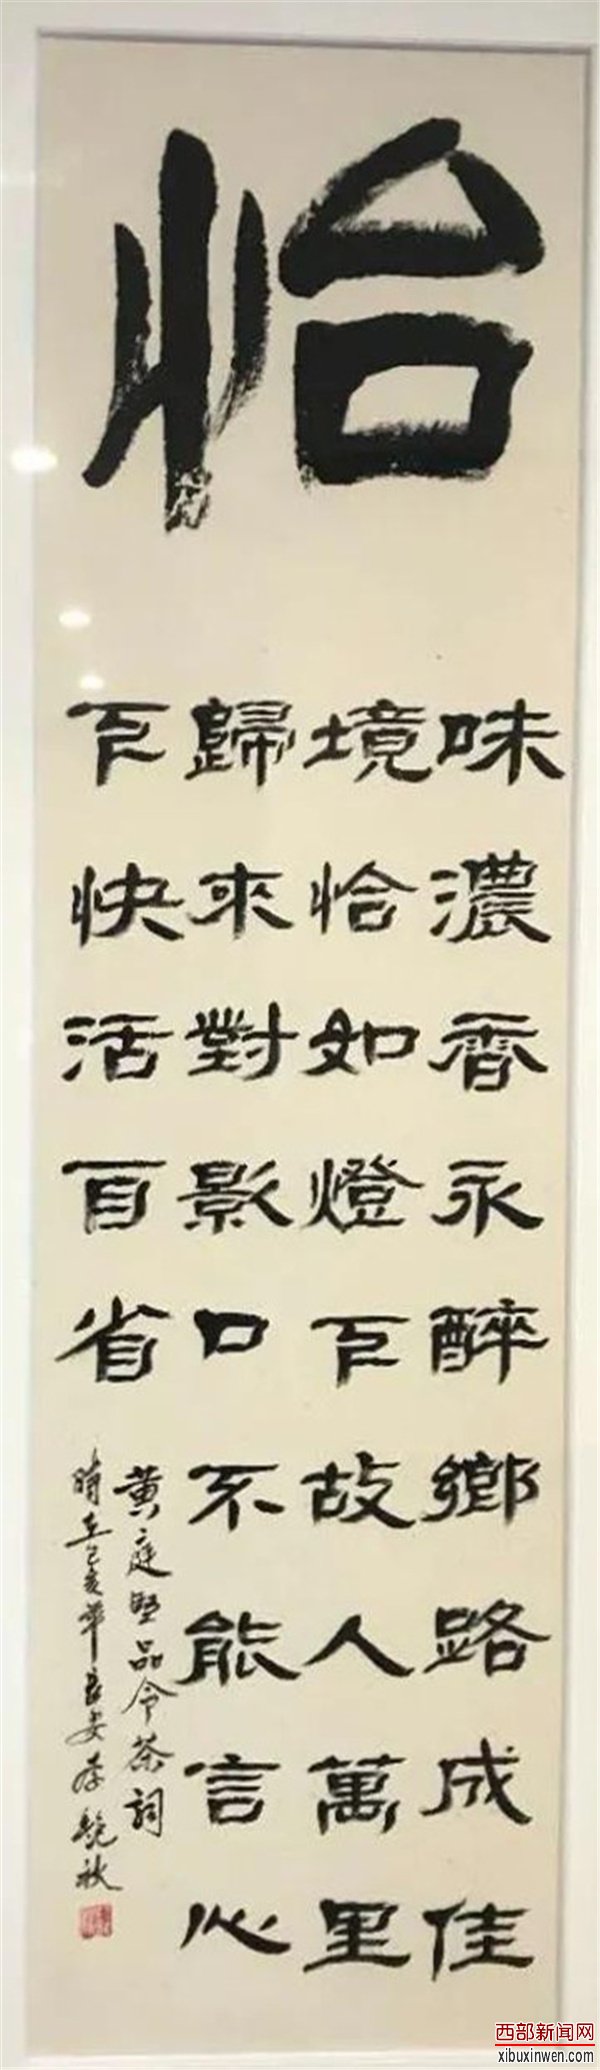 怡
味濃香永醉鄉路成佳
境恰如燈下故人萬里
歸來對影口不能言心
下快活自省
黄庭堅品令茶詞
時在己亥年長安李秋
西部新闻网
xibuxinwen.com